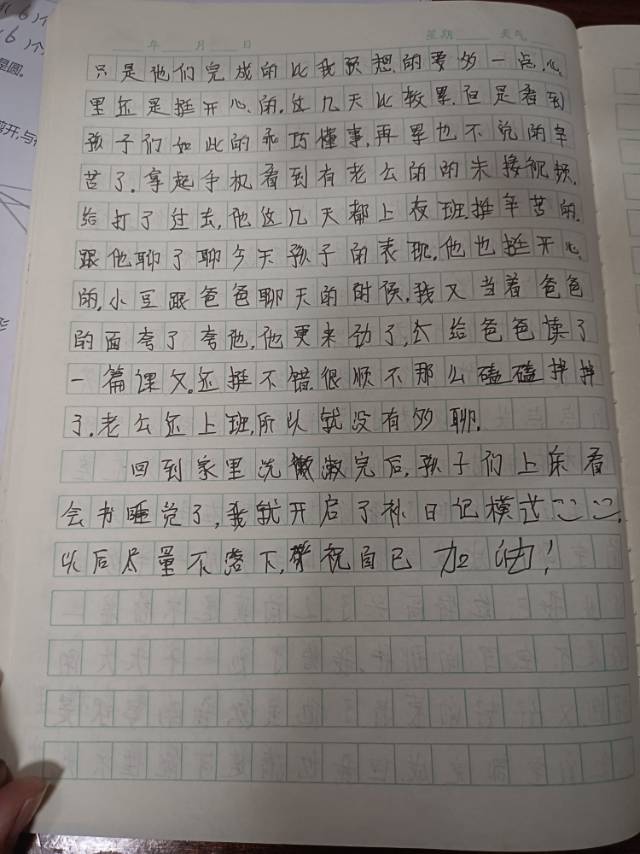 (6)个
6)个
是圆。
剪开,与
年 月 日 星期 天气
只是他们完成的比我预想的要多一点,心
里还是挺开心的,这几天比较累,但是看到
孩子们如此的乖巧懂事,再累也不说的辛
苦了。拿起手机看到有老公的的未接视频,
给打了过去,他这几天都上夜班,挺辛苦的,
跟他聊了聊今天孩子的表现,他也挺开心
的,小豆跟爸爸聊天的时候,我又当着爸爸
的面夸了夸他,他更来劲了,给爸爸读了
一篇课文,还挺不错,很顺不那么磕磕拌拌
了。老公还上班,所以就没有多聊。
回到家里洗漱完后,孩子们上床看
会书睡觉了,我就开启了补日记模式
以后尽量不落下,祝自己加油!